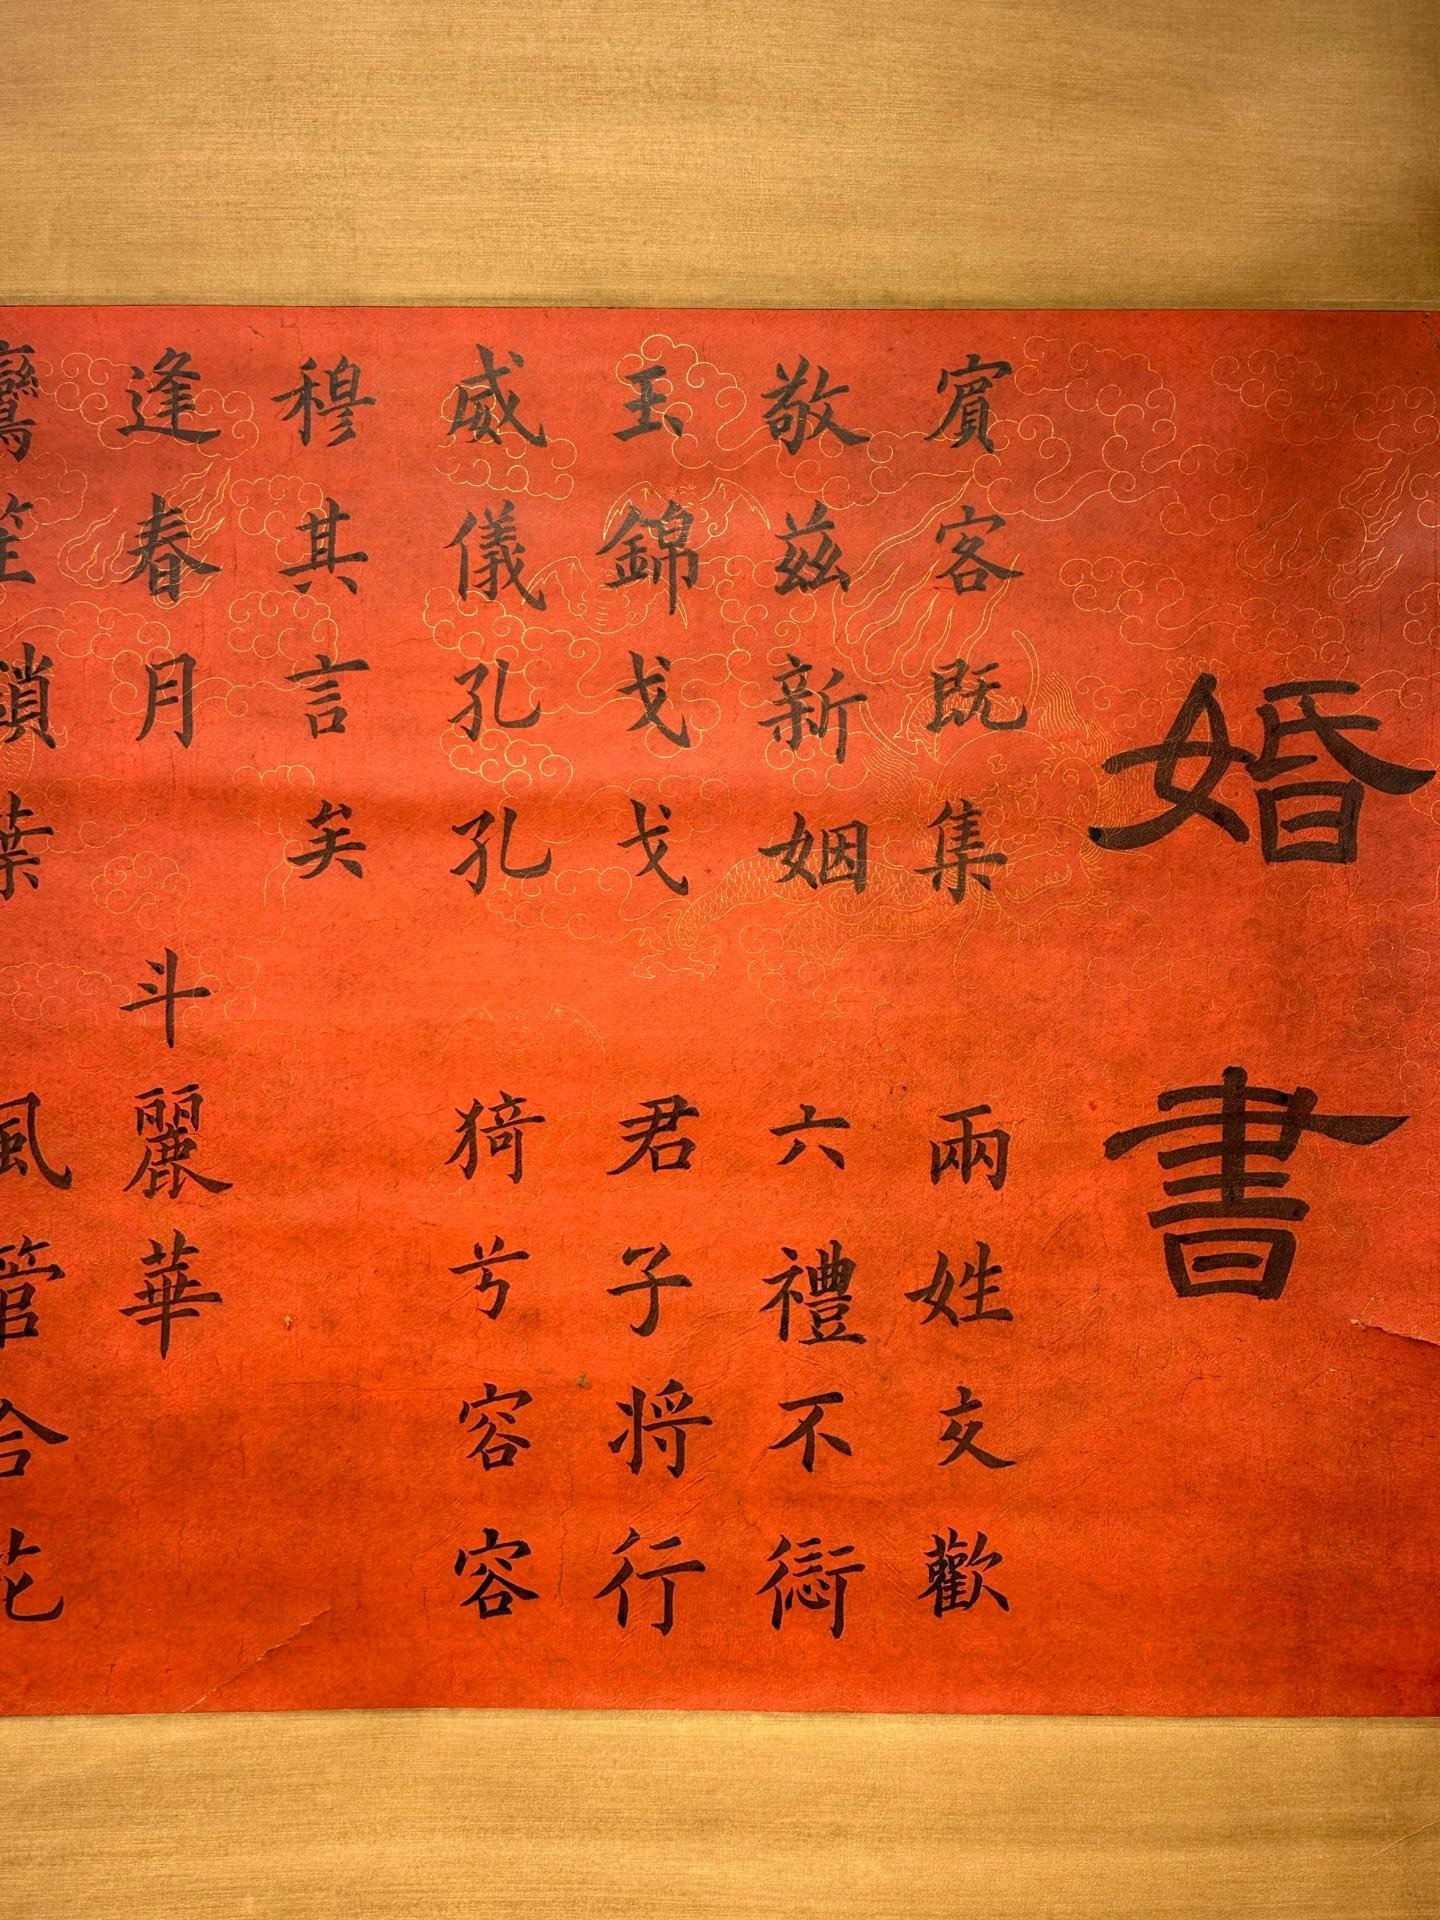 婚書
賓客既集　兩姓交歡
敬茲新姻　六禮不愆
玉錦戔戔　君子將行
威儀孔孔　猗兮容容
穆其言矣
逢春月　斗麗華
鸞笙鎖葉　風管合花